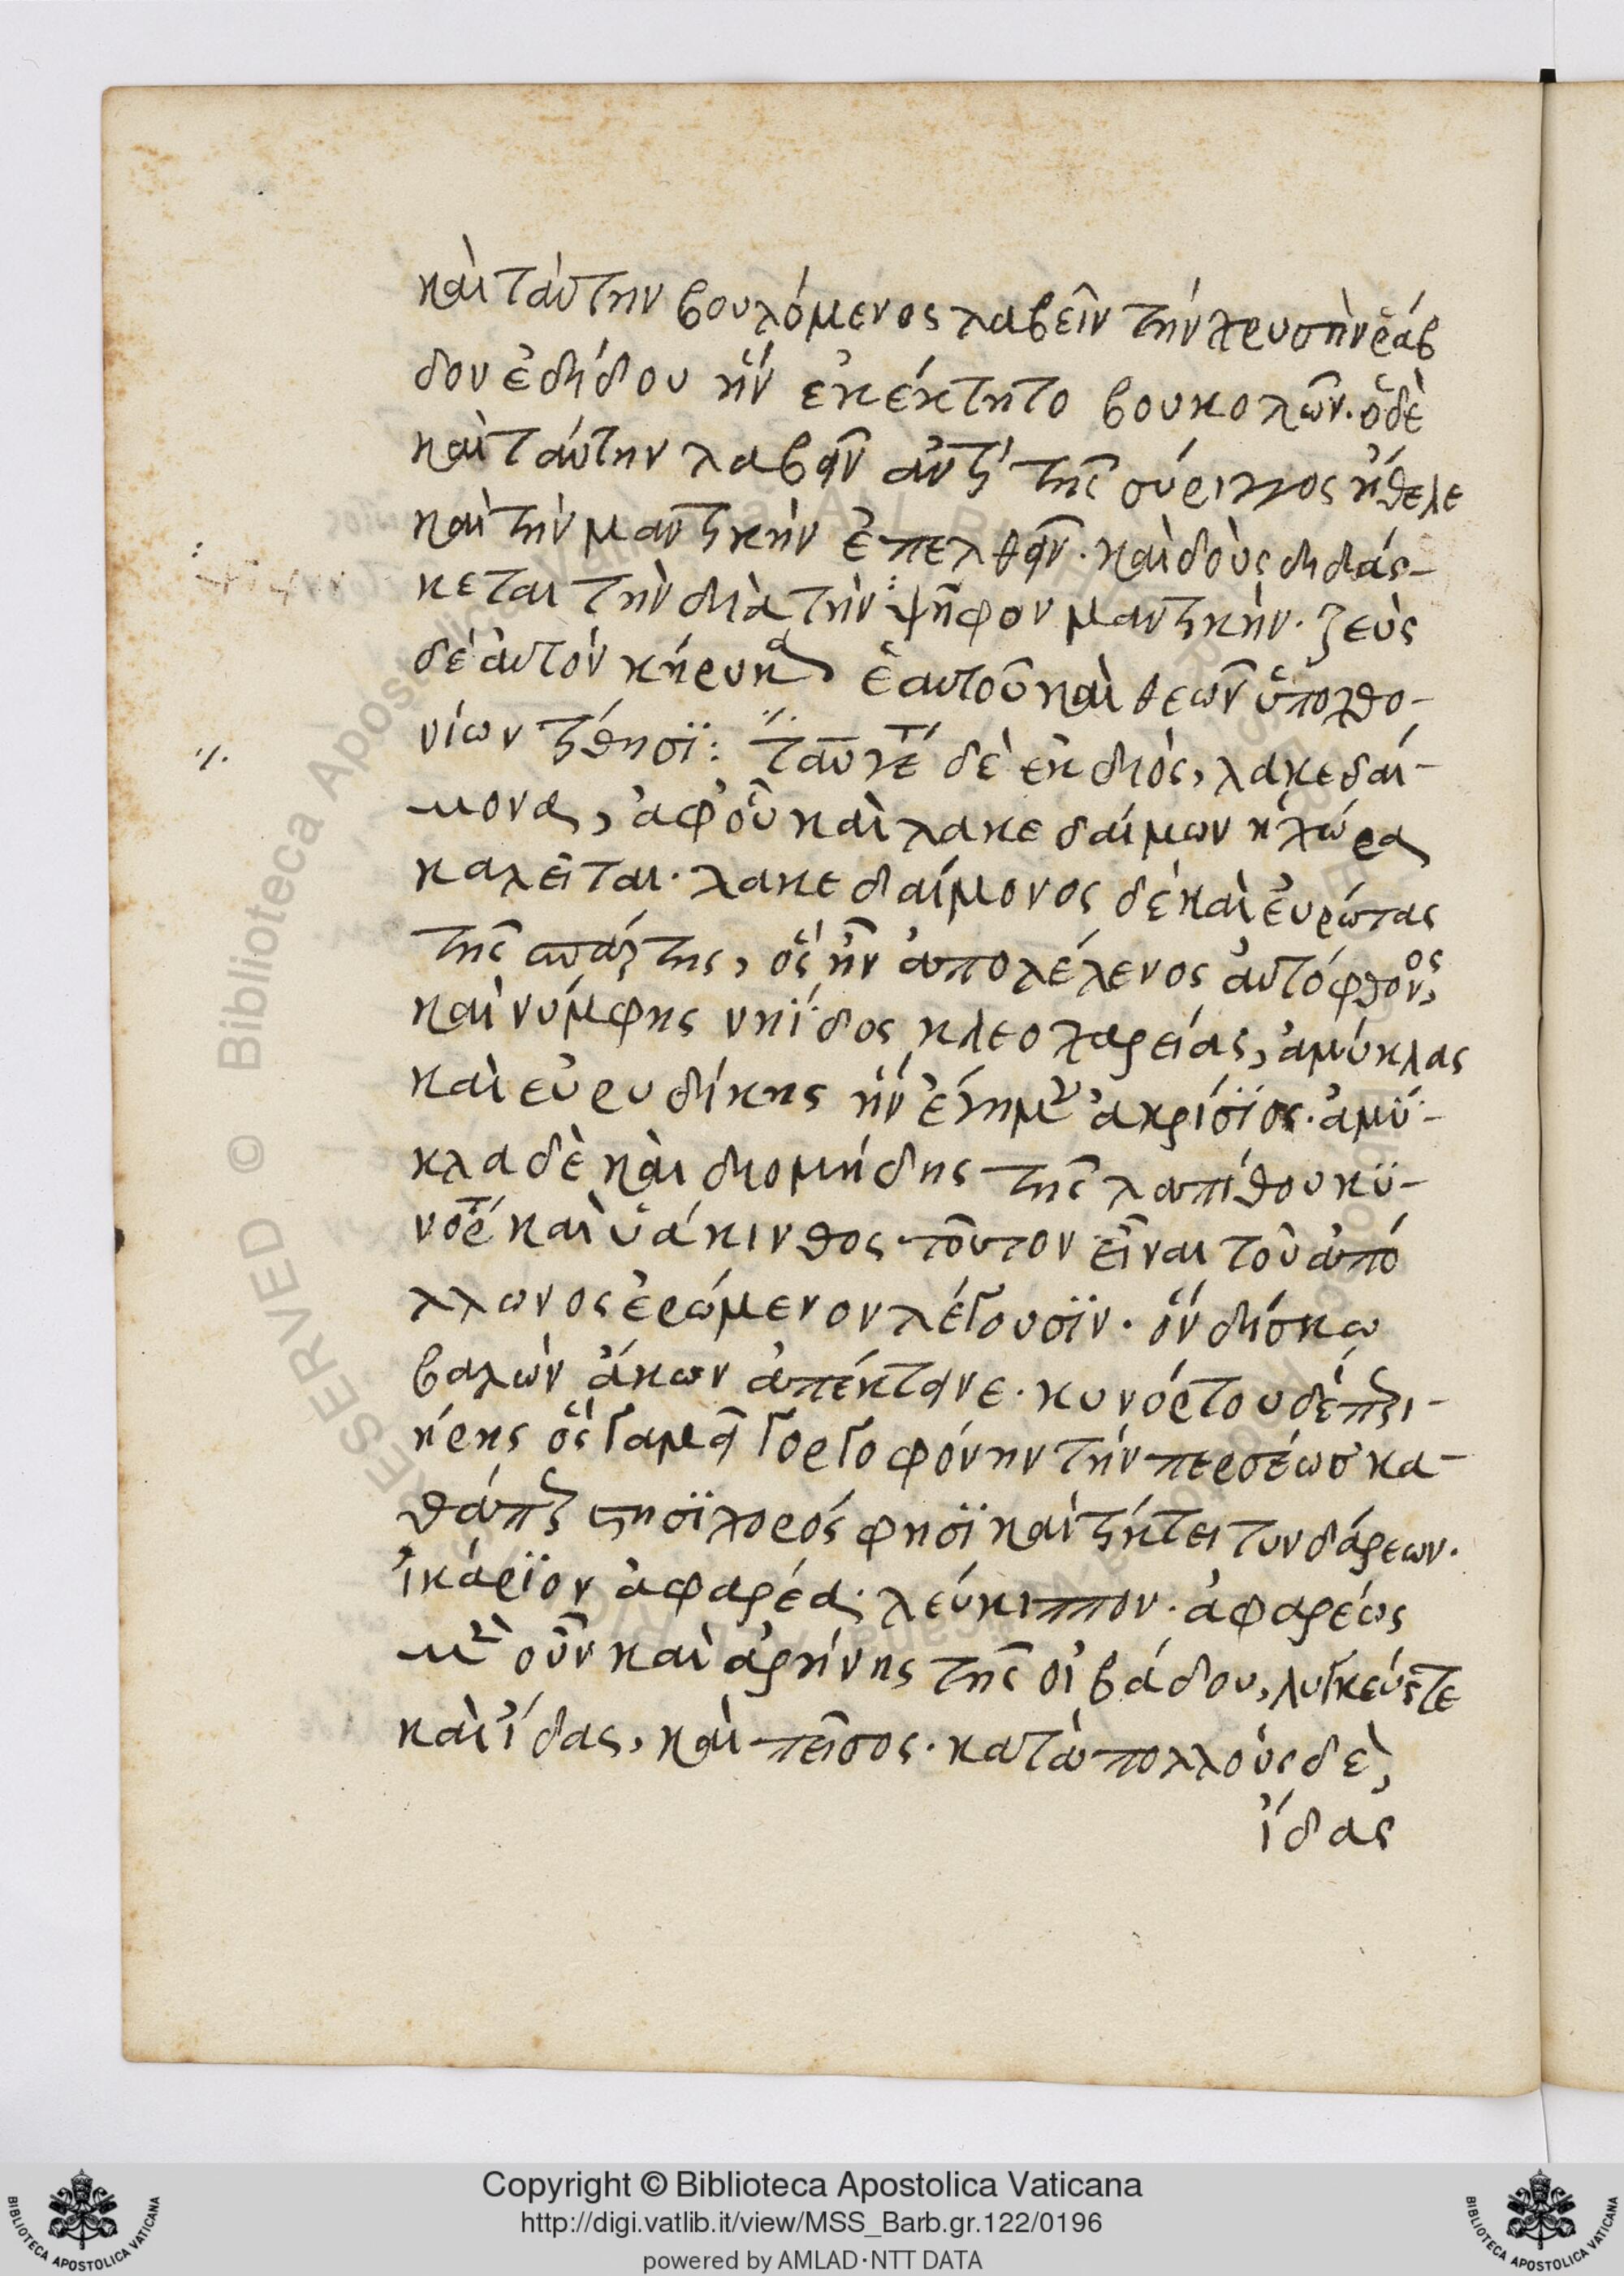 καὶ ταύτην βουλόμενος λαβεῖν τὴν χρυσὴν ῥάβ
δον ἐδίδου ἣν ἐκέκτητο βουκολῶν. ὁ δὲ
καὶ ταύτην λαβεῖν ἀντὶ τῆς σύριγγος ἤθελε
καὶ τὴν μαντικὴν ἐπελθεῖν. καὶ δοὺς διδάσ-
κεται τὴν διὰ τὴν ψῆφον μαντικήν. ζεὺς
δὲ αὐτὸν κήρυκα ἑαυτοῦ καὶ θεῶν ὑποχθο-
νίων τίθησϊ: ταϋγέτ δὲ ἐκ διός, λακεδαί-
μονα, ἀφ' οὗ καὶ λακεδαίμων ἡ χώρα
καλεῖται. λακεδαίμονος δὲ καὶ εὐρώτας
τῆς σπάρτης, ὅς ἦν ἀπολέλενος αὐτόχθονος,
καὶ νύμφης νηΐδος κλεοχαρείας, ἀμύκλας
καὶ εὐρυδίκης ἣν ἔγημεν ἀκρίσϊος. ἀμύ-
κλα δὲ καὶ διομήδης τῆς λαπίθου κϋ-
νόρτ καὶ ὑάκινθος. τοῦτον εἶναι τοῦ ἀπό
λλωνος ἐρώμενον λέγουσϊν. ὃν δίσκω
βαλὼν ἄκων ἀπέκτεινε. κυνόρτου δὲ περι-
ήρης ὃς γαμεῖ γοργοφόνην τὴν περσέως κα-
θάπερ στησϊχορός φησϊ καὶ τίκτει τυνδάρεων.
ἰκάρϊον ἀφαρέα. λεύκιππον. ἀφαρέως
μὲν οὖν καὶ ἀρήνης τῆς οἰβάδου, λυγκεύς τε
καὶ ἴδας, καὶ πεῖσος. κατὰ πολλοὺς δὲ,
ἴδας
Copyright © Biblioteca Apostolica Vaticana
http://digi.vatlib.it/view/MSS_Barb.gr.122/0196
powered by AMLAD·NTT DATA